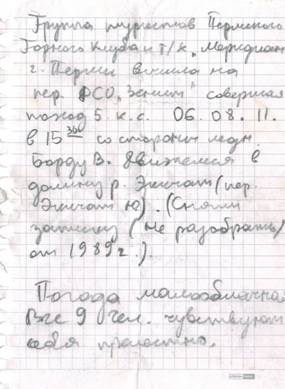 Группа туристов Пермского
Горного Клуба и т/к „Меридиан"
г. Перми вышла на
пер. ДСО „Зенит" совершая
поход 5 к.с. 06.08.11.
в 15 300 со стороны ледн
Борду В. Движемся в
долину р. Энгчат (пер.
Энгчат Ю). (Сняли
записку (не разобрать)
от 1989 г.).
Погода малооблачная
Все 9 чел. чувствуют
себя прелестно.